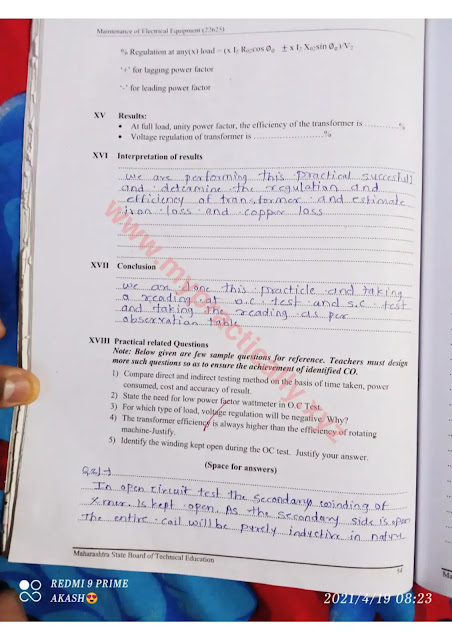 Maintenance of Electrical Equipment (22625)
% Regulation at any(x) load = (x I₂ R₀₂cos Ø₀ ± x I₂ X₀₂sin Ø₀)/V₂
'+' for lagging power factor
'-' for leading power factor
XV Results:
• At full load, unity power factor, the efficiency of the transformer is ............%
• Voltage regulation of transformer is .........................%
XVI Interpretation of results
we are performing this practical succesfull
and determine the regulation and
efficiency of transformer and estimate
iron loss and copper loss
XVII Conclusion
we are done this practicle and taking
a reading at o.c. test and s.c. test
and taking the reading as per
observation table
XVIII Practical related Questions
Note: Below given are few sample questions for reference. Teachers must design
more such questions so as to ensure the achievement of identified CO.
1) Compare direct and indirect testing method on the basis of time taken, power
consumed, cost and accuracy of result.
2) State the need for low power factor wattmeter in O.C Test.
3) For which type of load, voltage regulation will be negative. Why?
4) The transformer efficiency is always higher than the efficiency of rotating
machine-Justify.
5) Identify the winding kept open during the OC test. Justify your answer.
(Space for answers)
In open circuit test the secondary winding of
Xmer. Is kept open. As the secondary side is open
The entire coil will be purely inductive in nature
Maharashtra State Board of Technical Education
54
REDMI 9 PRIME
AKASH😍
2021/4/19 08:23